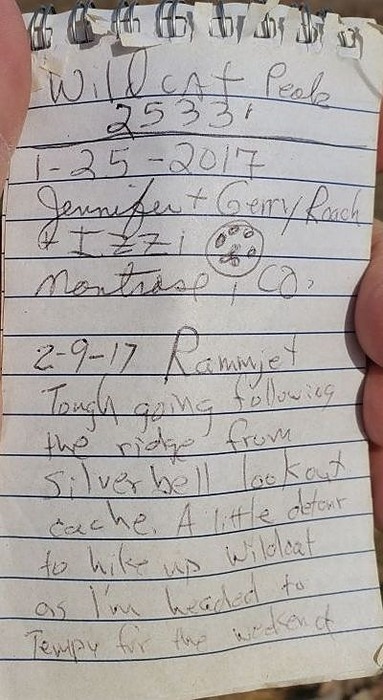 Wildcat Peak
2533'
1-25-2017
Jennifer + Gerry Roach
+ IZZi
Montrose, CO.
2-9-17 Rammjet
Tough going following
the ridge from
Silverbell lookout
cache. A little detour
to hike up Wildcat
as I'm headed to
Tempy for the weekend